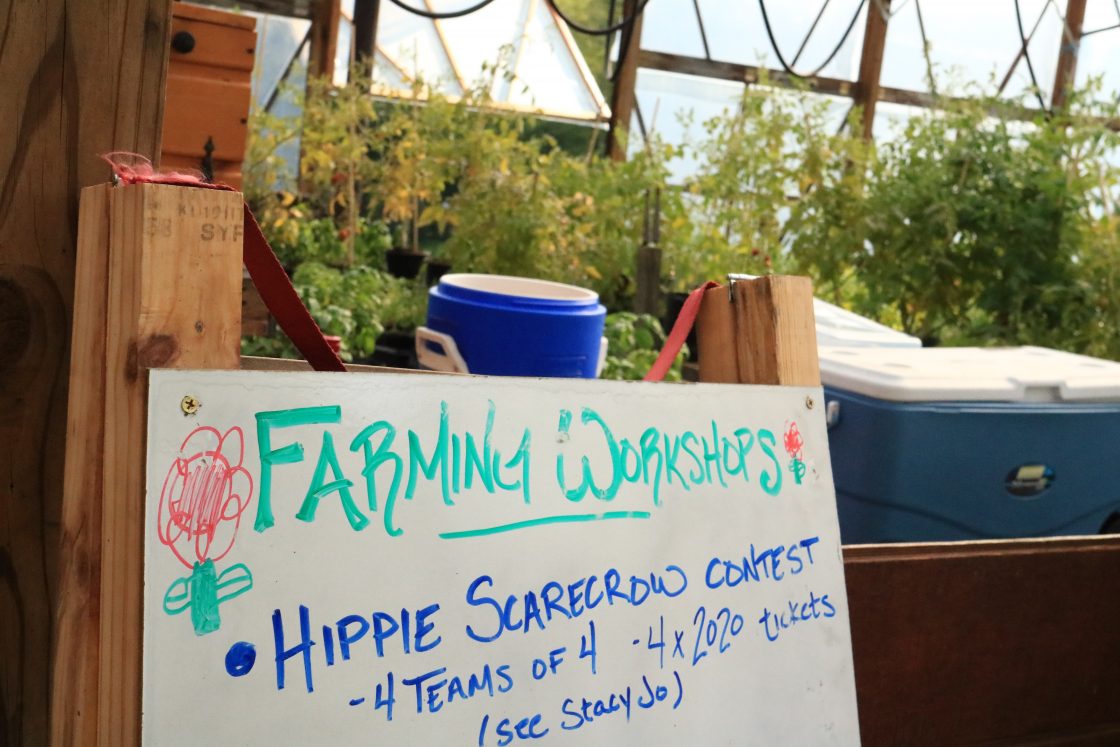 SYP
FARMING WORKSHOPS
• HIPPIE SCARECROW CONTEST
- 4 TEAMS OF 4 - 4 x 2020 tickets
(see Stacy Jo)